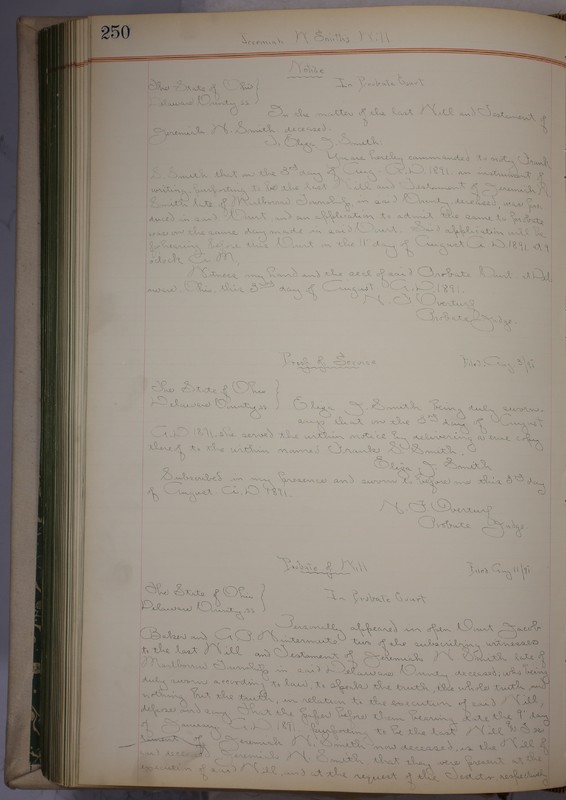 250
Jeremiah N Smiths Will
Notice
The State of Ohio
Delaware County ss
In Probate Court
In the matter of the last Will and Testament of
Jeremiah N. Smith deceased.
To Eliza J. Smith
You are hereby commanded to notify Frank
S. Smith that on the 3rd day of Aug. A.D. 1891. an instrument of
writing, purporting to be the last Will and Testament of Jeremiah N.
Smith late of Township, in said County, deceased, was pro-
duced in said Court, and an application to admit the same to probate
was on the same day made in said Court. Said application will be
for hearing before this Court on the 11th day of August A.D. 1891. at 9
oclock A.M.
Witness my hand and the seal of said Probate Court at Del-
aware, Ohio, this 3rd day of August A.D. 1891.
Probate Judge.
Proof of Service
Filed Aug
The State of Ohio
Delaware County ss
Eliza J. Smith being duly sworn.
says that on the 3rd day of August
A.D. 1891. she served the within notice by delivering a true copy
thereof to the within named Frank S. Smith.
Eliza J Smith
Subscribed in my presence and sworn to before me this day
of August. A.D. 1891
Probate Judge
Probate of Will
Filed Aug 11/91
The State of Ohio
Delaware County ss
In Probate Court
Personally appeared in open Court Jacob
and two of the subscribing witnesses
to the last Will and Testament of Jeremiah N Smith late of
Township in said Delaware County deceased, who being
duly sworn according to law, to speak the truth, the whole truth and
nothing but the truth, in relation to the execution of said Will,
depose and say: That the paper before them bearing date the 9" day
of January A.D. purporting to be the last Will & Tes-
tament of Jeremiah N. Smith now deceased, is the Will of
said deceased Jeremiah N. Smith that they were present at the
execution of said Will, and at the request of the Testator, respectively